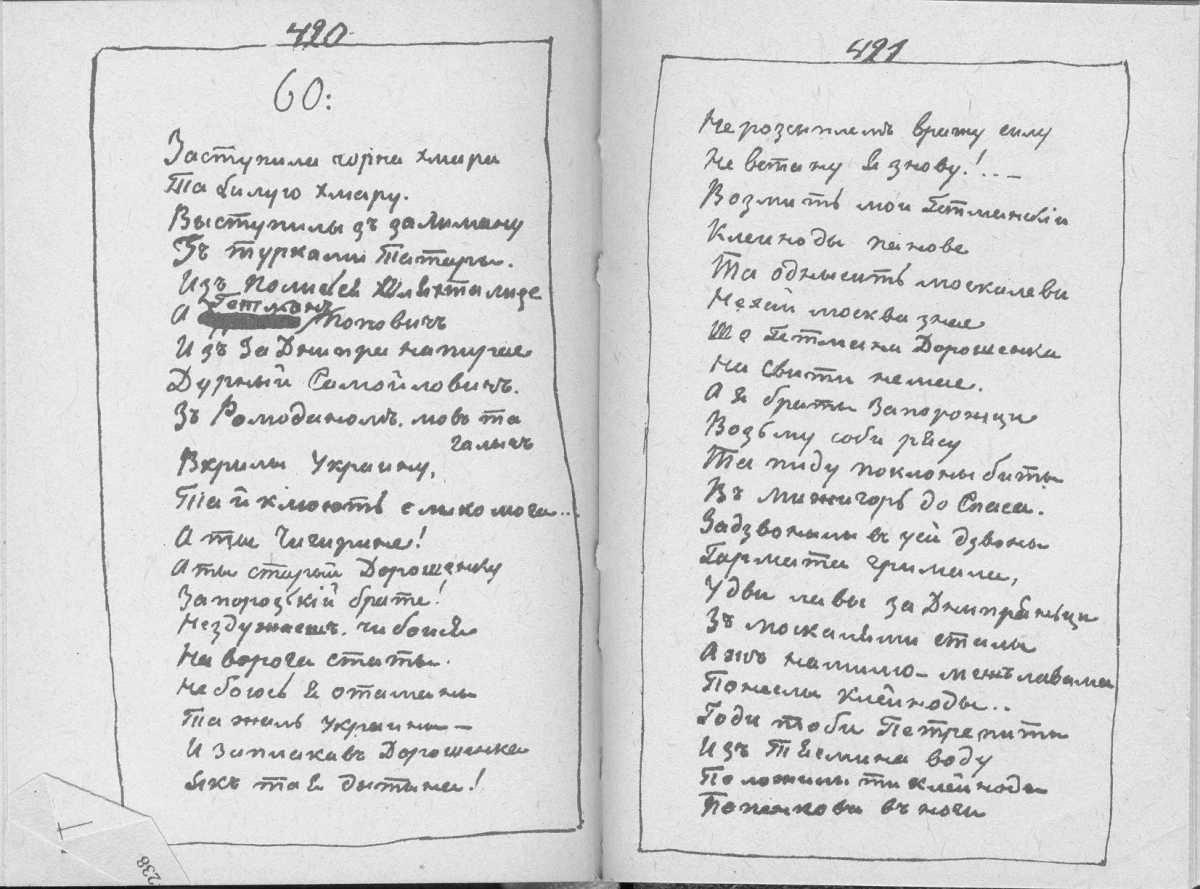 420
60:
Заступила чорна хмара
Та билую хмару.
Выступилы зъ за Лиману
Зъ турками Татары.
Изъ Полисся Шляхта лизе
А Гетманъ Поповичъ
Изъ За Днипра напирае
Дурный Самойловичъ.
Зъ Ромоданомъ. мовъ та
галычъ
Вкрилы Украину,
Тай клюють елико мога...
А ты Чигирине!
А ты старый Дорошенку
Запорозскій брате!
Нездужаешъ. чи боисся
На ворога статы.
Не боюсь я отаманы
Та жаль Украины —
И Заплакавъ Дорошенко
Якъ тая дытына!
421
Не розсиплемъ вражу силу
Не встану я знову!... —
Возмить мои Гетманскіи
Клейноды панове
Та однесить москалеви
Нехай москва знае
Що Гетмана Дорошенка
На Свити немае.
А я браты Запорожци
Возьму соби рясу
Та пиду поклоны биты
Въ Межигоръ до Спаса.
Задзвонылы въ усй дзвоны
Гармата гримала,
У дви лавы за Днипряньци
Зъ москалями сталы
Ажъ на милю — межъ лавами
Понеслы клейноды..
Годи тоби Петре пыты
Изъ Тясмина воду
Положылы ти клейноды
Попенкови въ ноги
238